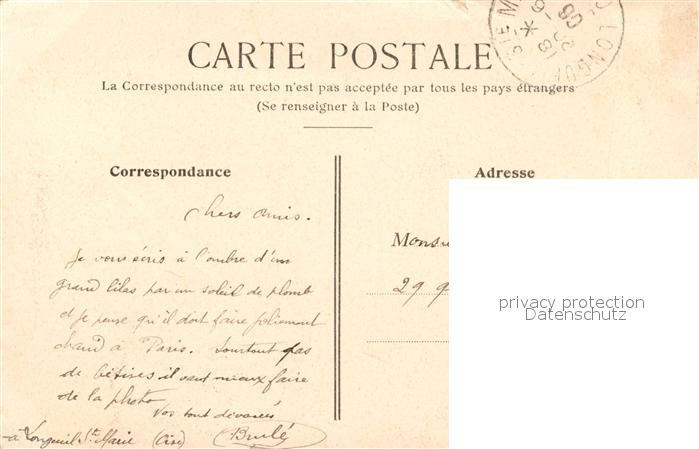 CARTE POSTALE
La Correspondance au recto n'est pas acceptée par tous les pays étrangers
(Se renseigner à la Poste)
Correspondance
Chers amis.
Je vous écris à l'ombre d'un
grand lilas par un soleil de plomb
et je pense qu'il doit faire joliement
chaud à Paris. Surtout pas
de bétises il vaut mieux faire
de la photo
Vos tout dévoués
Brulé
à Longueil Ste Marie (Oise)
Adresse
Monsi
29
privacy protection
Datenschutz